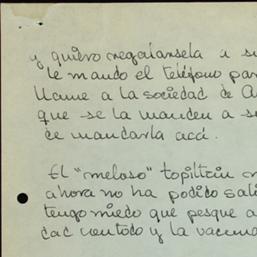 y quiero regalarsela a su
le mando el teléfono par
llame a la sociedad de A
que se la manden a s
ce mandarla acá.
El "meloso" topiltzin
ahora no ha podido sali
tengo miedo que pesque a
dad contodo y la vacuna